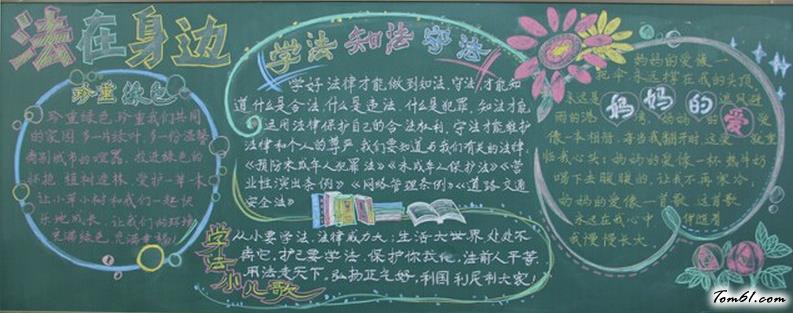 法在身边
珍重绿色
珍重绿色,珍重我们共同
的家园,多一片绿叶,多一份温馨
离别城市的喧嚣,投进绿色的
怀抱,植树造林,爱护一草一木
让小草小树和我们一起快
乐地成长,让我们的环境
充满绿色,充满幸福!
学法 知法 守法
学好法律才能做到知法、守法,才能知
道什么是合法,什么是违法,什么是犯罪,知法才能
运用法律保护自己的合法权利,守法才能维护
法律和个人的尊严,我们要知道与我们有关的法律,
《预防未成年人犯罪法》《未成年人保护法》《营
业性演出条例》《网络管理条例》《道路交通
安全法》
学法小儿歌
从小要学法,法律威力大;生活大世界,处处不
离它,护己要学法,保护你我他,法前人平等,
用法走天下,弘扬正气好,利国利民利大家!
妈妈的爱
妈妈的爱像一
把伞,永远撑在我的头顶,
永远是
雨的港
像一本相册,每当我翻开时,这爱
临我心头;妈妈的爱像一杯热牛奶
喝下去暖暖的,让我不再寒冷,
妈妈的爱像一首歌,这首歌
永远在我心中,伴随着
我慢慢长大
Tom61.com